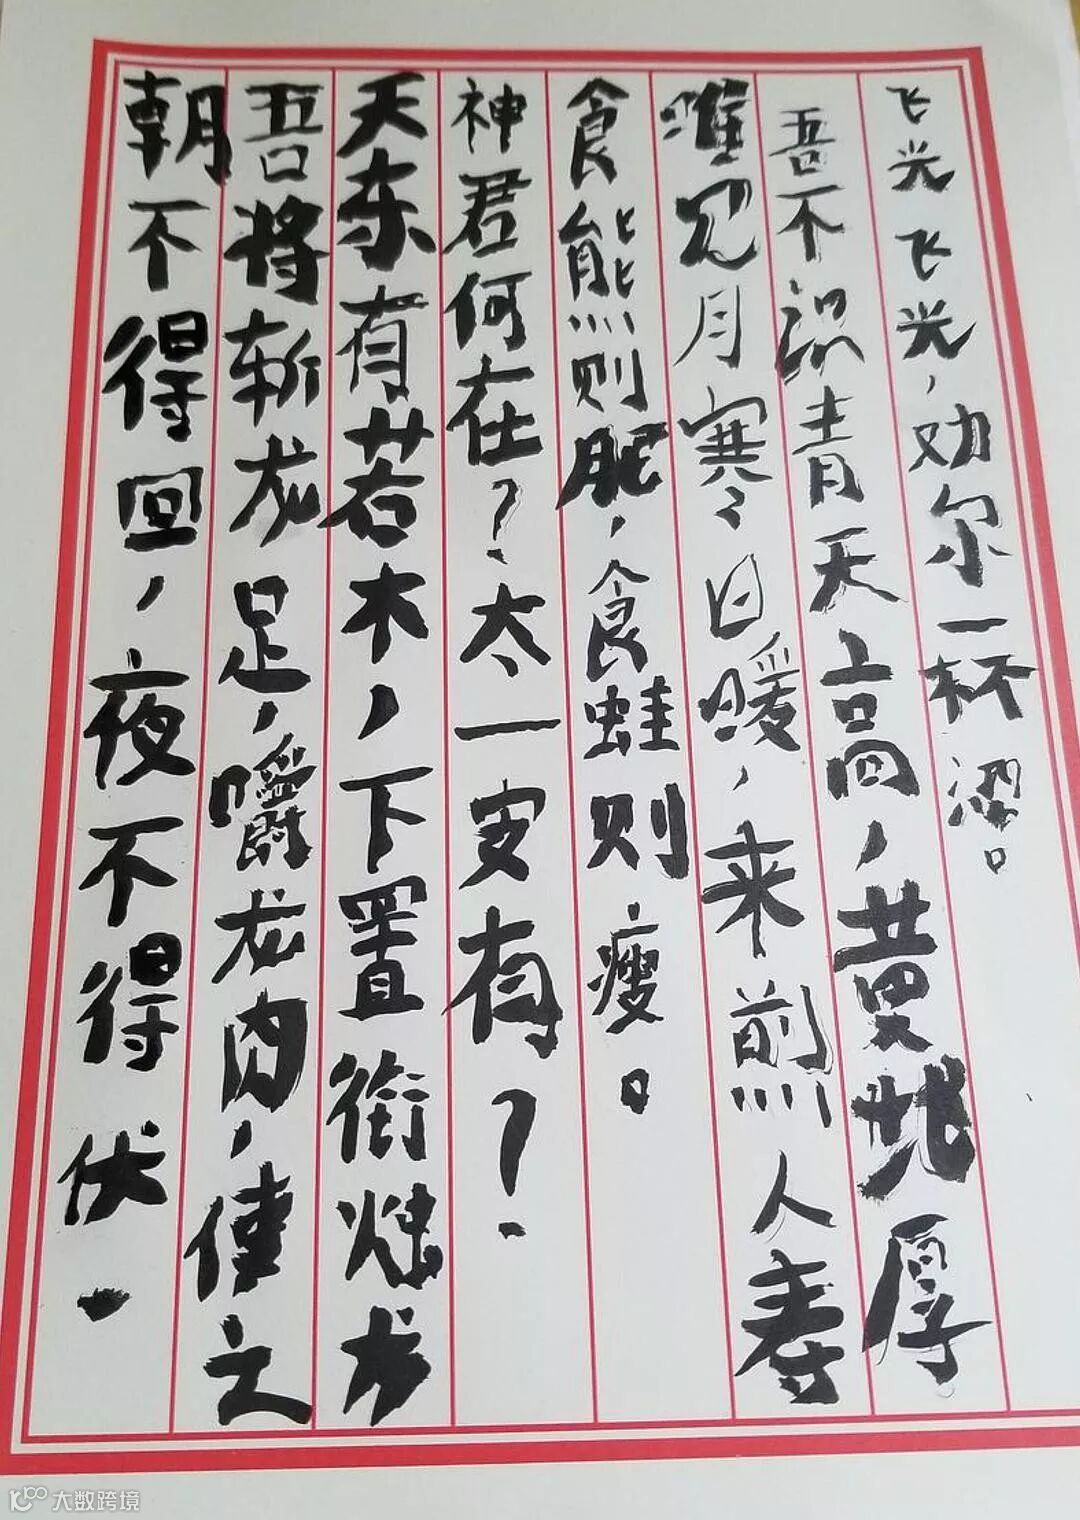 飞光飞光，劝尔一杯酒。
吾不识青天高，黄地厚
唯见月寒日暖，来煎人寿
食熊则肥，食蛙则瘦。
神君何在？太一安有？
天东有若木，下置衔烛龙
吾将斩龙足，嚼龙肉，使之
朝不得回，夜不得伏.
大数跨境